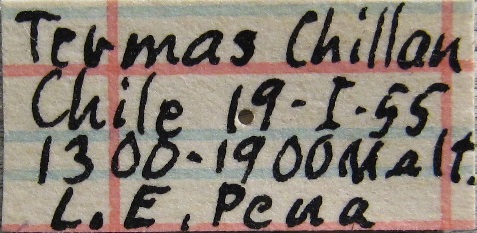 Termas Chillan
Chile 19-I-55
1300-1900M alt.
L. E. Pena